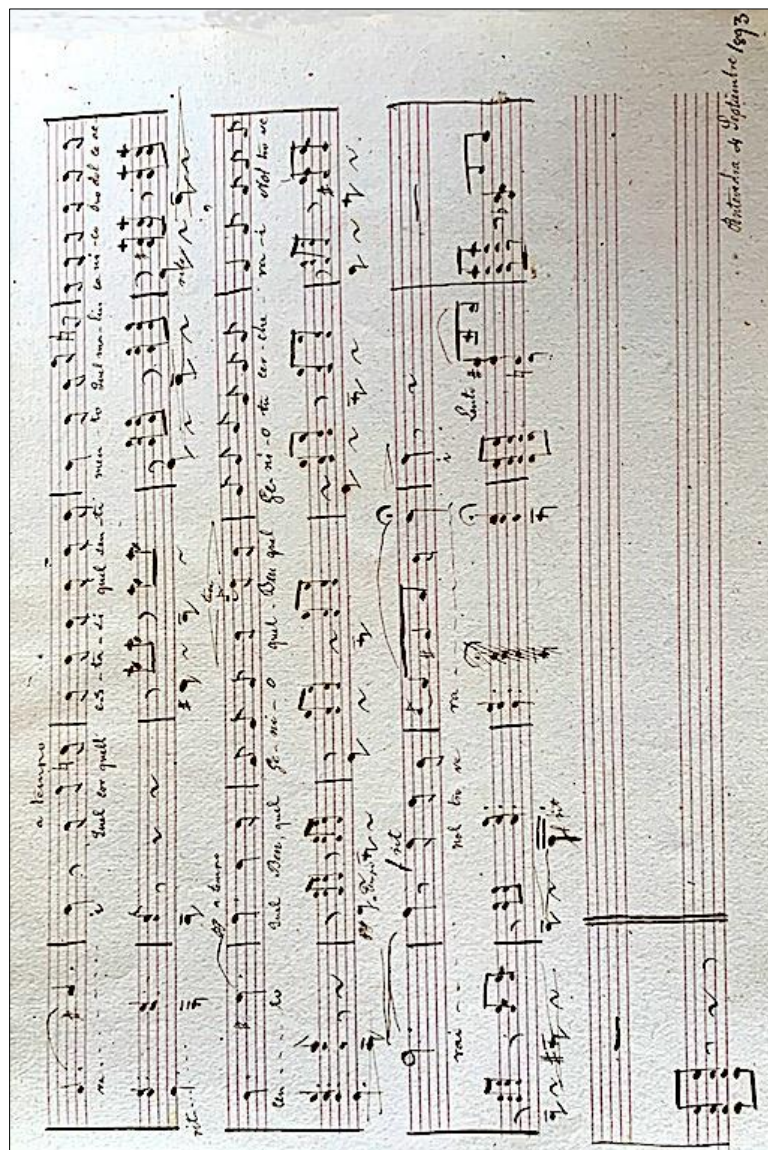 a tempo
ra - - - - - i Quel cor quell es - ta - si quel sen - ti men to Quel ma - lin co - ni - co del ce
rit - - -
a tempo ten
len - - - to Quel Ben, quel Ge - ni - o quel - Ben quel Ge - ni - o tu cer - che - ra - i Nol tro ve
rit
rai - - - nol tro ve ra - - - - - i
Lento
rit
Pontevedra de Septiembre 1893